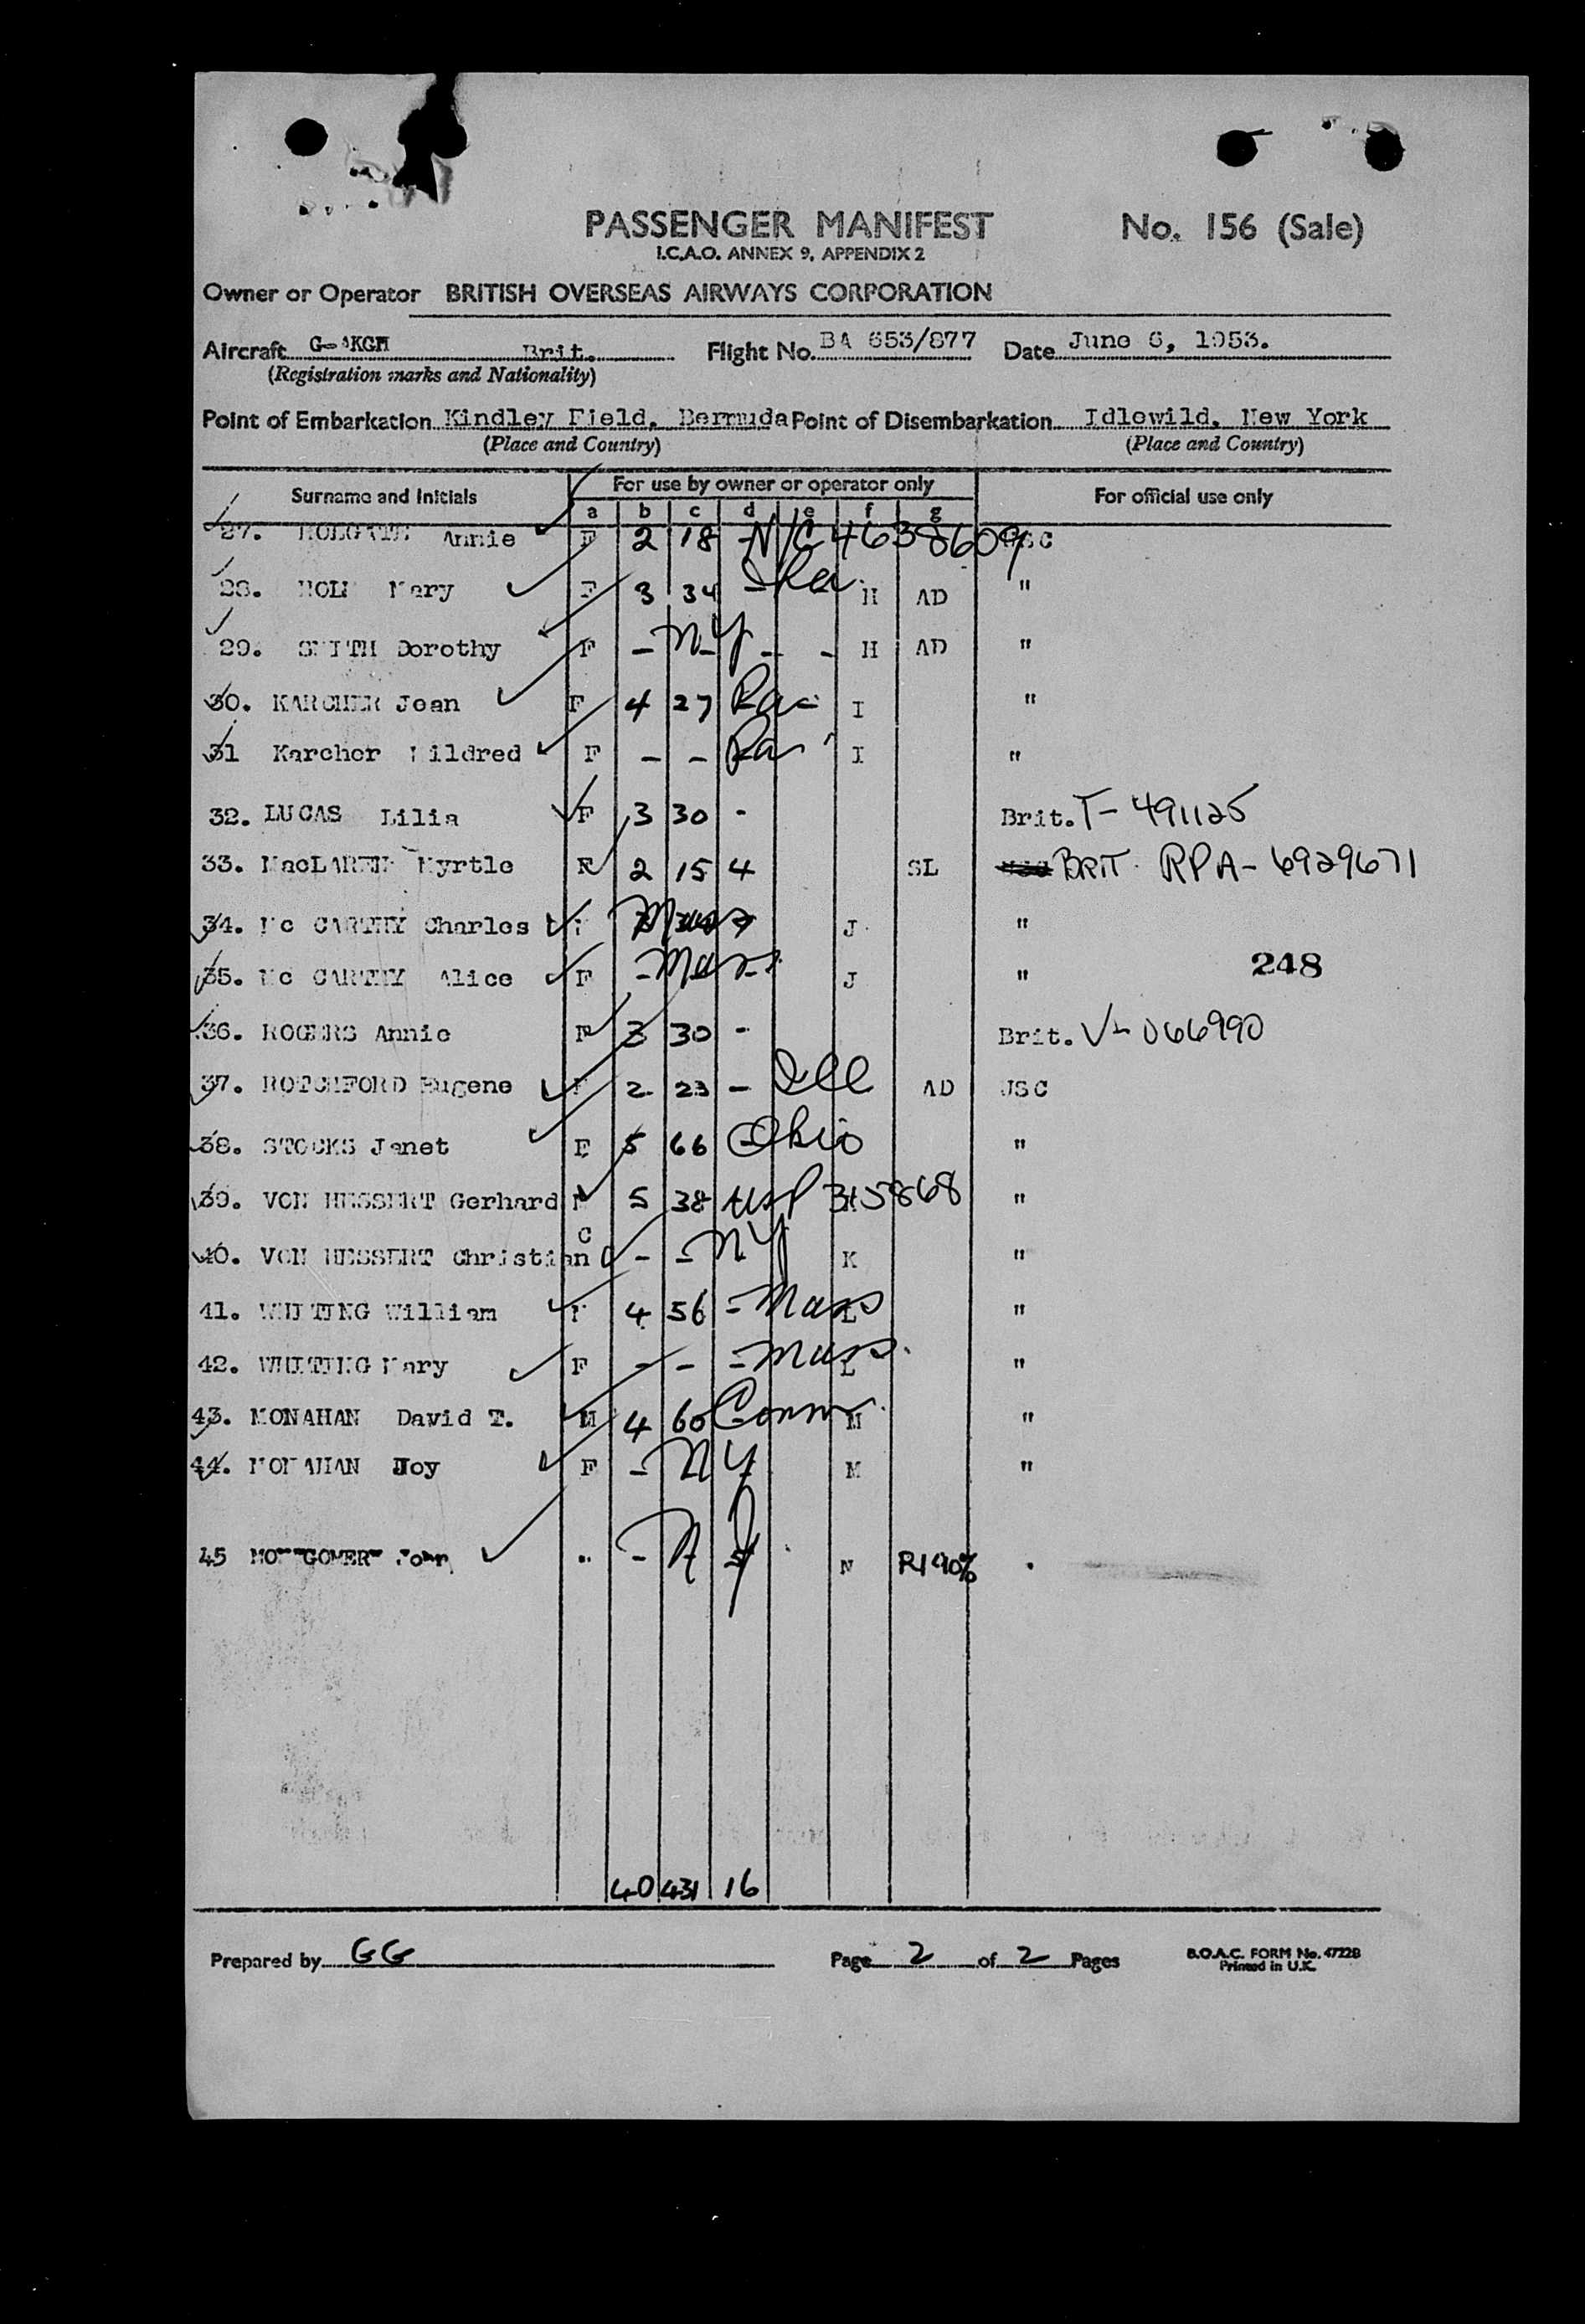 PASSENGER MANIFEST No. 156 (Sale)
I.C.A.O. ANNEX 9, APPENDIX 2
Owner or Operator BRITISH OVERSEAS AIRWAYS CORPORATION
Aircraft G-AKGM Brit. Flight No. BA 653/877 Date June 6, 1953.
(Registration marks and Nationality)
Point of Embarkation Kindley Field, Bermuda Point of Disembarkation Idlewild, New York
(Place and Country) (Place and Country)
Surname and Initials For use by owner or operator only For official use only
a b c d e f g
27. HOLGATE Annie F 2 18 N/C 4638609 USC
28. Mary F 3 34 - H AD "
29. SMITH Dorothy F - N-Y - - H AD "
30. KARCHER Jean F 4 27 Pa - I "
31 Karcher Mildred F - - Pa I "
32. LUCAS Lilia F 3 30 - Brit. T-491125
33. MacLAREN Myrtle F 2 15 4 SL BRIT. RPA-6929671
34. Mc CARTHY Charles Mass J "
35. Mc CARTHY Alice F - Mass J "
248
36. ROGERS Annie F 3 30 - Brit. V-066990
37. ROTCHFORD Eugene 2 23 - Ill AD USC
38. STOCKS Janet F 5 66 Ohio "
39. VON HESSERT Gerhard M 5 38 USP 315868 "
40. VON HESSERT Christian C - - NY K "
41. WHITING William M 4 56 - Mass L "
42. WHITING Mary F - - - Mass. L "
43. MONAHAN David T. M 4 60 Conn M "
44. MONAHAN Joy F - NY M "
45 MONTGOMERY John " - N Y N R190%
40 431 16
Prepared by GG Page 2 of 2 Pages B.O.A.C. FORM No. 4722B
Printed in U.K.